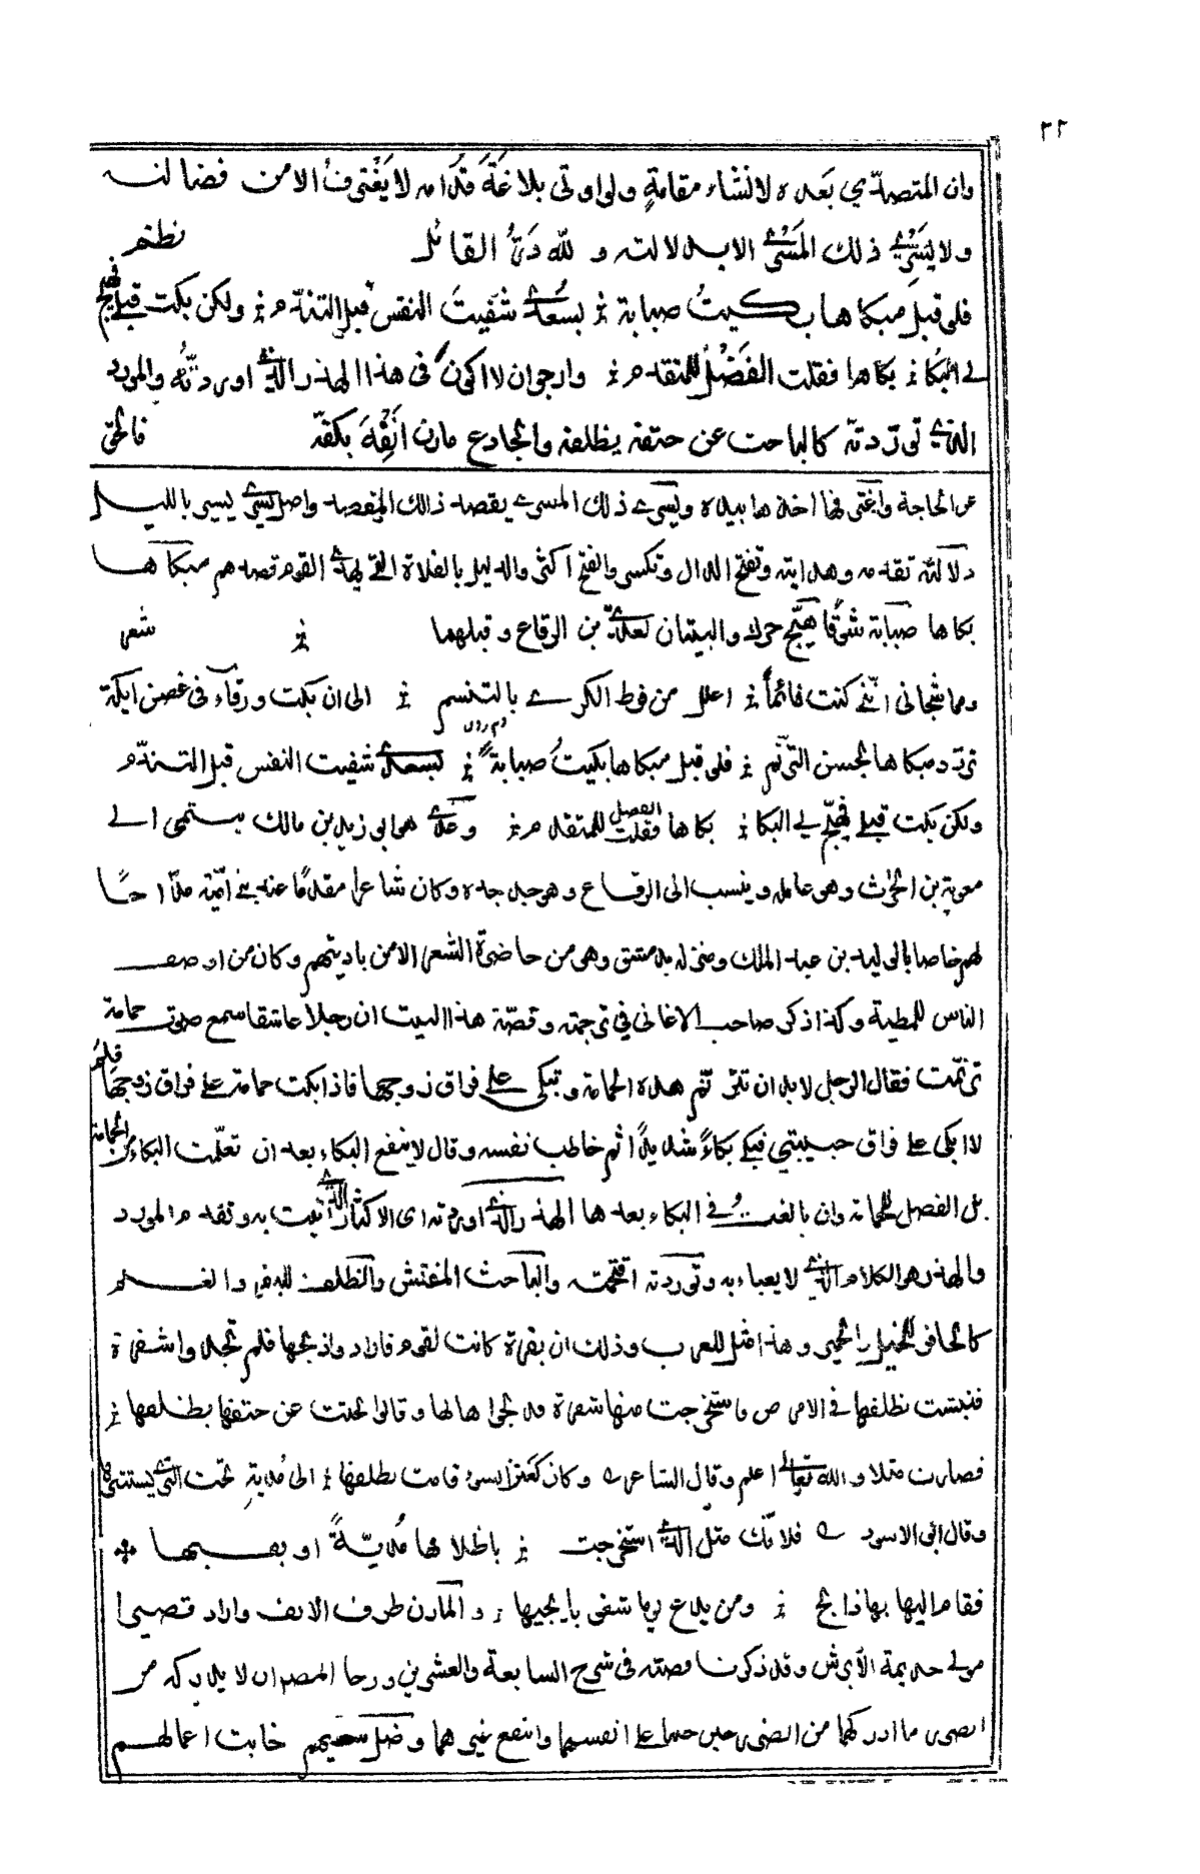 ٢٢
وان المتصدّي بَعده لانشاء مقامةٍ ولو اوتى بلاغَةَ قُدَامه لا يَغْترف الا من فضالته
ولا يَسْرِي ذلك المَسْرٰى الا بدلالته و للّٰه دَرُّ القائل نظم
فلو قبل مبكاها بكيتُ صبابة ؛ بسُعدٰى شفَيتُ النفس قبل التندّم ؛ ولكن بكت قبلي فهيّج
لي البكا ؛ بكاها فقلت الفَضْلُ للمتقدم ؛ وارجو ان لا اكون فى هذا الهذر الذي اوردتُه والمورد
الذي تورّدته كالباحث عن حتفه بظلفه والجادع مارن اَنْفِهَ بكفّه فالحق
عن الحاجة واغنى فيها اخذها بيده ويَسري ذلك المسرى يقصد ذالك المقصد واصل يَسري يسير بالليل
دلالته تقدمه وهدايته وتفتح الدال وتكسر والفتح اكثر والدليل بالفلاة الذي يهدي القوم قصدهم مبكاها
بكاها صبابة شوقا هيّج حرك والبيتان لعديّ بن الرقاع وقبلهما ؛ شعر
ومما شجانى انّني كنت نائماً ؛ اعلل من فرط الكرى بالتنسم ؛ الى ان بكت ورقآء فى غصن ايكة
تردد مبكاها بحسن الترنّم ؛ فلو قبل مبكاها بكيتُ صبابة ؛ بسعدى شفيت النفس قبل التندّم
ولكن بكت قبلي فهيّج لي البكا ؛ بكاها فقلت الفضل للمتقدم ؛ وعدي هو ابن زيد بن مالك ينتهى الى
معوية بن الحرث وهو عامله وينسب الى الرقاع وهو جد جده وكان شاعرا مقدمًا عند بني اميّة مدّاحًا
لهم خاصا بالوليد بن عبد الملك ومنزله بدمشق وهو من حاضرة الشعراء لا من باديتهم وكان من اوصف
الناس للمطية وكذا ذكر صاحب الاغانى في ترجمته وقصّة هذا البيت ان رجلا عاشقا سمع صوت حمامة
ترنمت فقال الرجل لا بد ان تترنم هذه الحمامة وتبكى على فراق زوجها فاذا بكت حمامة على فراق زوجها فلم
لا ابكى على فراق حبيبتي فبكى بكاءً شديدًا ثم خاطب نفسه وقال لا ينفع البكاء بعد ان تعلّمت البكاء من الحمامة
بل الفضل للحمامة وان بالغت في البكاء بعدها الهذر الذي اوردته اى الاكثار الذي اتيت به وتقدم المورد
والهذر هو الكلام الذي لا يعباء به وتوردته اقتحمته والباحث المفتش والظلف للبقر والغنم
كالحافر للخيل والحمير وهذا مثل للعرب وذلك ان بقرة كانت لقوم فارادوا ذبحها فلم تجدوا شفرة
فنبشت بظلفها فى الارض فاستخرجت منها شفرة فذبحوها لها وقالوا بحثت عن حتفها بظلفها ؛
فصارت مثلا والله تعالى اعلم وقال الشاعر وكان كعنز السوء قامت بظلفها ؛ الى مُديةٍ تحت الثرى يستثيرها
وقال ابى الاسود فلا تك مثل الذي استخرجت ؛ باظلافها مُديّةً او بفيها
فقام اليها بها ذابح ؛ ومن يدع يوما شعوبا يجيها ؛ والمارن طرف الانف واراد قصيرا
مولى جذيمة الأبرش وقد ذكرنا قصته فى شرح السابعة والعشرين ورجا المصر ان لا يدركه من
الضرر ما ادركهما من الضرر حين جنيا على انفسهما وانتفع غيرهما وضل سعيهم خابت اعمالهم